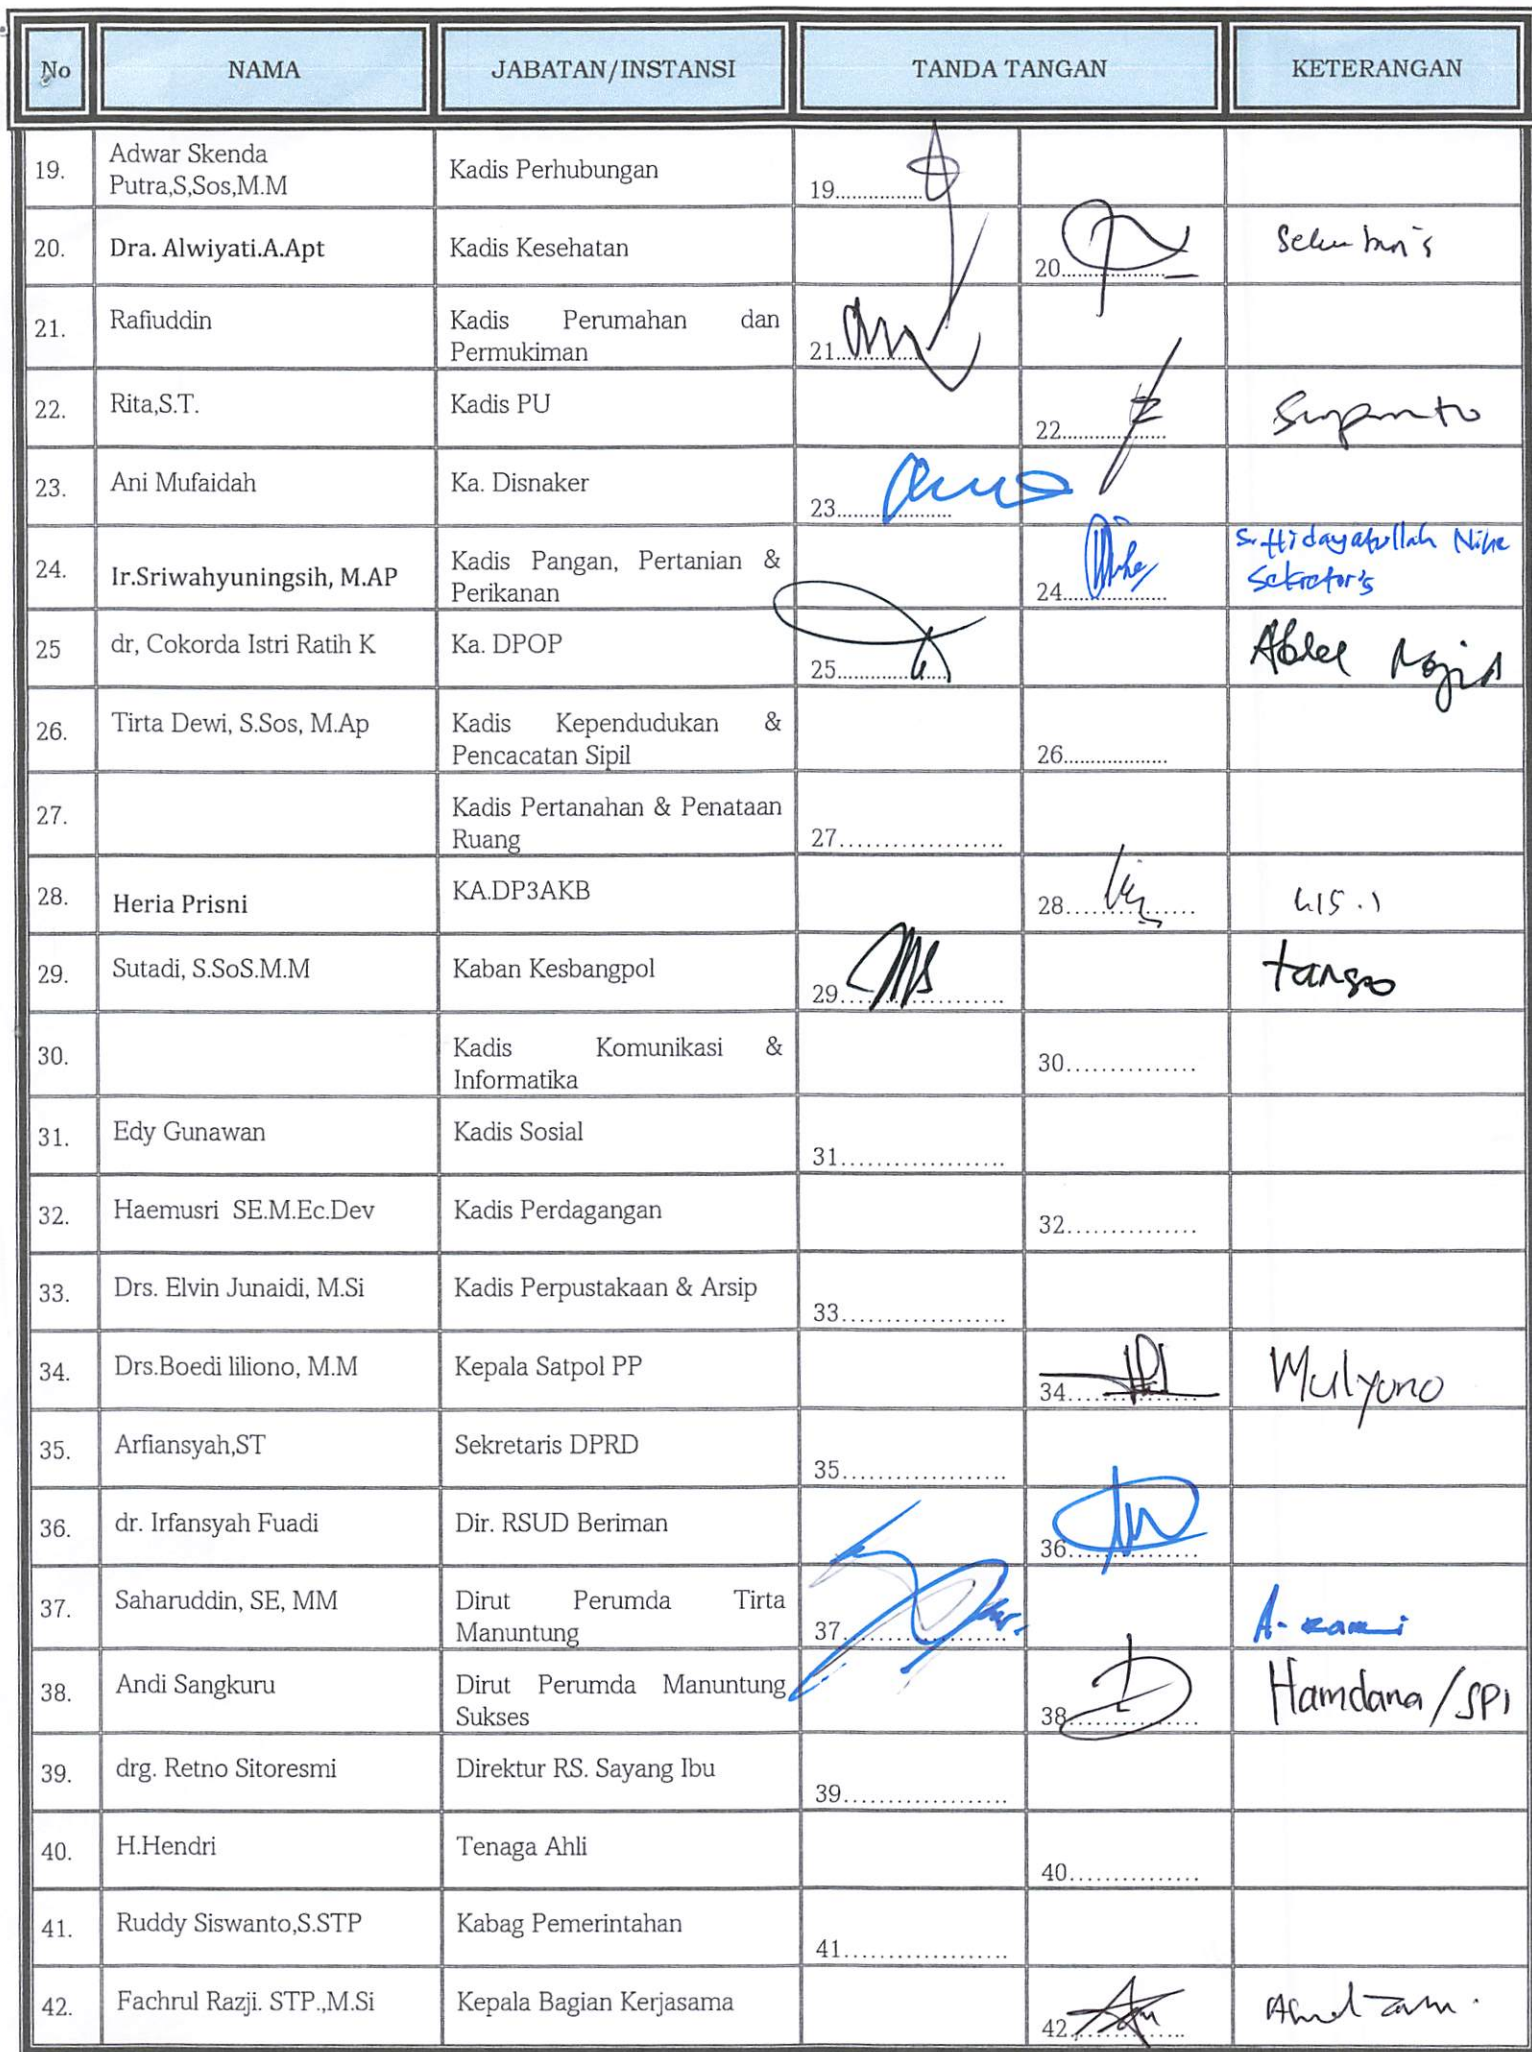 No NAMA JABATAN/INSTANSI TANDA TANGAN KETERANGAN
19. Adwar Skenda Kadis Perhubungan
Putra,S,Sos,M.M 19..................
20. Dra. Alwiyati.A.Apt Kadis Kesehatan
20.....................
21. Rafiuddin Kadis Perumahan dan
Permukiman 21..................
22. Rita,S.T. Kadis PU
22.....................
23. Ani Mufaidah Ka. Disnaker
23.....................
24. Ir.Sriwahyuningsih, M.AP Kadis Pangan, Pertanian &
Perikanan 24.....................
25 dr, Cokorda Istri Ratih K Ka. DPOP
25.....................
26. Tirta Dewi, S.Sos, M.Ap Kadis Kependudukan &
Pencacatan Sipil 26.....................
27. Kadis Pertanahan & Penataan
Ruang 27...................
28. Heria Prisni KA.DP3AKB
28...............
29. Sutadi, S.SoS.M.M Kaban Kesbangpol
29...................
30. Kadis Komunikasi &
Informatika 30...............
31. Edy Gunawan Kadis Sosial
31...................
32. Haemusri SE.M.Ec.Dev Kadis Perdagangan
32...............
33. Drs. Elvin Junaidi, M.Si Kadis Perpustakaan & Arsip
33...................
34. Drs.Boedi liliono, M.M Kepala Satpol PP Mulyono
34...............
35. Arfiansyah,ST Sekretaris DPRD
35...................
36. dr. Irfansyah Fuadi Dir. RSUD Beriman
36...............
37. Saharuddin, SE, MM Dirut Perumda Tirta
Manuntung 37...................
38. Andi Sangkuru Dirut Perumda Manuntung Hamdana/SPI
Sukses 38...............
39. drg. Retno Sitoresmi Direktur RS. Sayang Ibu
39...................
40. H.Hendri Tenaga Ahli
40...............
41. Ruddy Siswanto,S.STP Kabag Pemerintahan
41...................
42. Fachrul Razji. STP.,M.Si Kepala Bagian Kerjasama
42...............